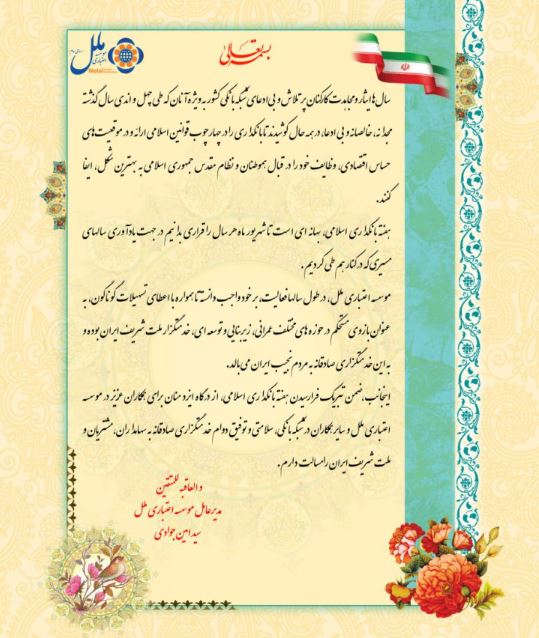 بسمه تعالی
موسسه اعتباری ملل
Melal
سال‌ها ایثار و مجاهدت کارکنان پر تلاش و بی ادعای شبکه بانکی کشور به ویژه آنان که طی چهل و اندی سال گذشته
مجدانه، خالصانه و بی ادعا، در همه حال کوشیدند تا بانکداری را در چهارچوب قوانین اسلامی ارائه و در موقعیت‌های
حساس اقتصادی، وظایف خود را در قبال هموطنان و نظام مقدس جمهوری اسلامی به بهترین شکل، ایفا
کنند.
هفته بانکداری اسلامی، بهانه ای است تا شهریور ماه هر سال را قراری بدانیم در جهت یادآوری سالهای
مسیری که در کنار هم طی کردیم.
موسسه اعتباری ملل، در طول سالها فعالیت، بر خود واجب دانسته تا همواره با اعطای تسهیلات گوناگون، به
عنوان بازوی مستحکم در حوزه های مختلف عمرانی، زیربنایی و توسعه ای، خدمتگزار ملت شریف ایران بوده و
به این خدمتگزاری صادقانه به مردم نجیب ایران می‌بالد.
اینجانب، ضمن تبریک فرارسیدن هفته بانکداری اسلامی، از درگاه ایزد منان برای همکاران عزیز در موسسه
اعتباری ملل و سایر همکاران در شبکه بانکی، سلامتی و توفیق دوام خدمتگزاری صادقانه به سهامداران، مشتریان و
ملت شریف ایران را مسالت دارم.
و العاقبه للمتقین
مدیرعامل موسسه اعتباری ملل
سید امین جوادی